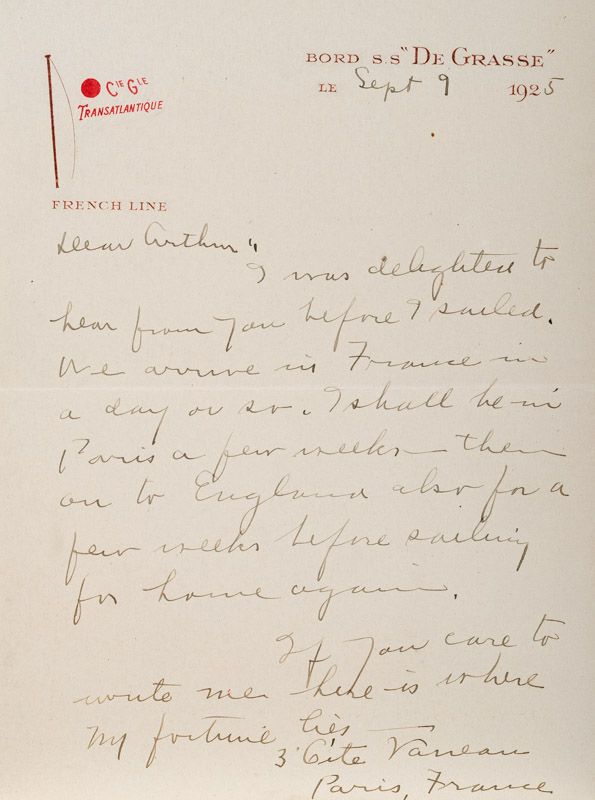 BORD S.S "DE GRASSE"
LE Sept 9 1925
Cie Gle
TRANSATLANTIQUE
FRENCH LINE
Dear Arthur"
I was delighted to
hear from you before I sailed.
We arrive in France in
a day or so. I shall be in
Paris a few weeks – then
on to England also for a
few weeks before sailing
for home again.
If you care to
write me here is where
my fortune lies —
3 Cite Vaneau
Paris, France